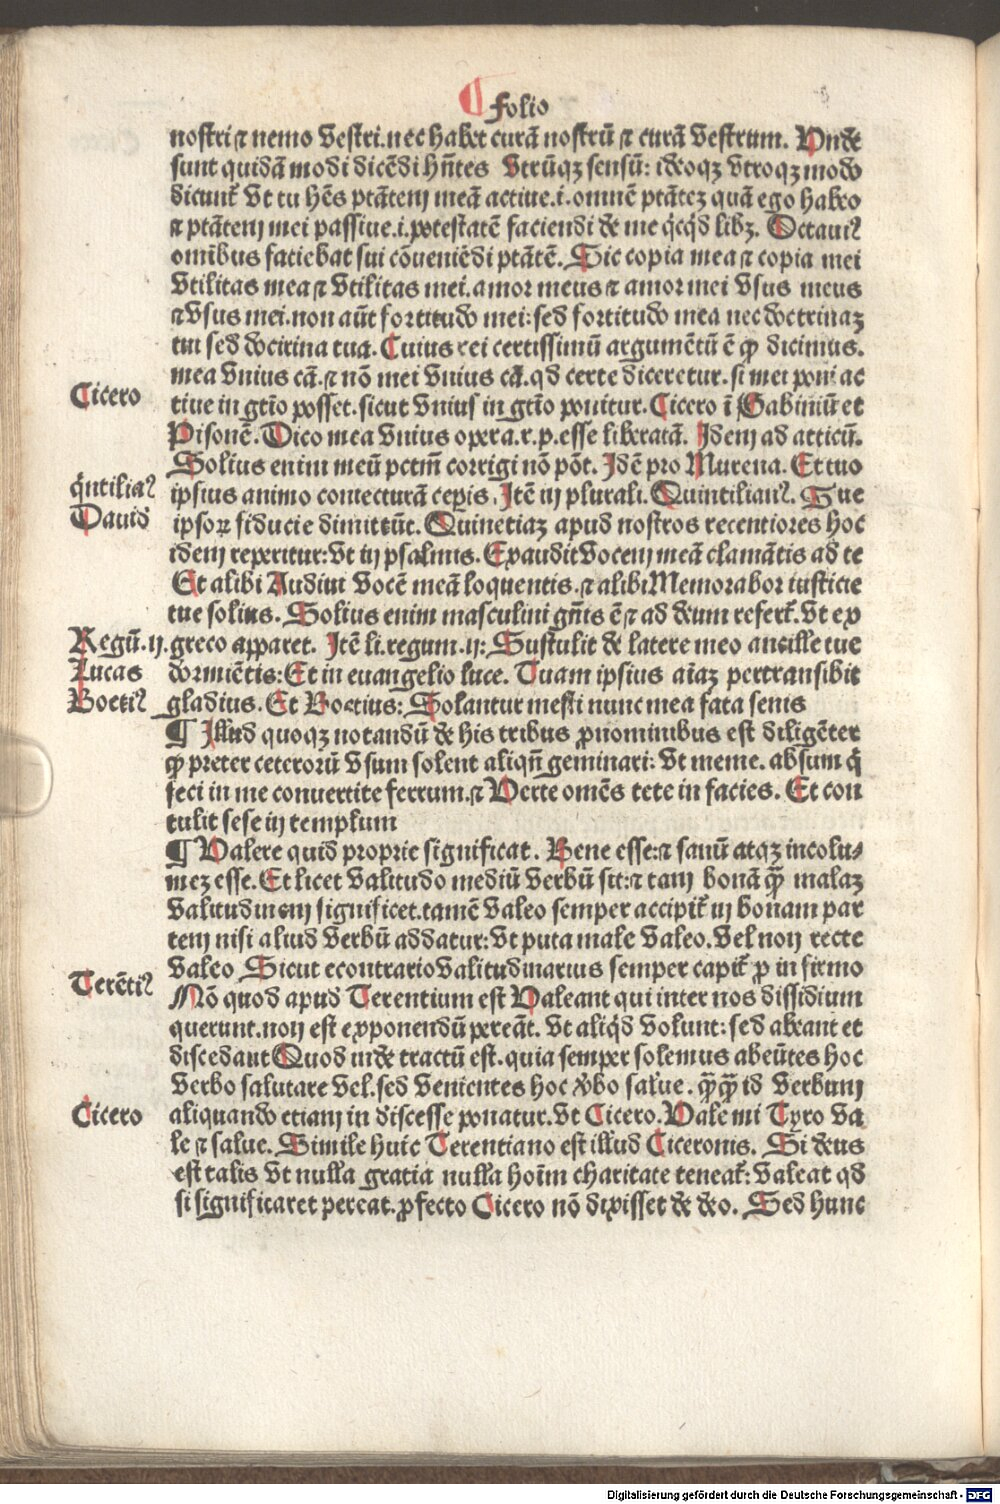 ¶ folio
nostri ⁊ nemo vestri. nec habet curā nostrū ⁊ curā vestrum. Vnde
sunt quidā modi dicēdi hn̄tes vtrūqꝫ sensū: ideoqꝫ vtroqꝫ modo
dicunt̄ vt tu hēs ptātem meā actiue .i. omnē ptātez quā ego habeo
⁊ ptātem mei passiue .i. potestatē faciendi de me qcqd libꝫ. Octauiꝰ
omībus faciebat sui cōueniēdi ptātē. Sic copia mea ⁊ copia mei
vtilitas mea ⁊ vtilitas mei. amor meus ⁊ amor mei vsus meus
⁊ vsus mei. non aūt fortitudo mei: sed fortitudo mea nec doctrinaz
tui sed doctrina tua. Cuius rei certissimū argumētū ē ꝙ dicimus.
mea vnius cā. ⁊ nō mei vnius cā. qd certe diceretur. si mei poni ac
Cicero
tiue in gtīo posset. sicut vnius in gtīo ponitur. Cicero ī Gabiniū et
Pisonē. Dico mea vnius opera .r. p. esse liberatā. Idem ad atticū.
Solius enim meū pctm̄ corrigi nō pōt. Idē pro Murena. Et tuo
q̄ntiliaꝰ
ipsius animo coniecturā ceꝑis. Itē in plurali. Quintilianꝰ. Sue
Dauid
ipsoꝝ fiducie dimittūt. Quinetiaz apud nostros recentiores hoc
idem reperitur: vt in psalmis. Exaudit vocem meā clamātis ad te
Et alibi Audiui vocē meā loquentis. ⁊ alibi Memorabor iusticie
tue solius. Solius enim masculini gn̄is ē ⁊ ad deum refert̄. vt ex
Regū .ij.
greco apparet. Itē li. regum .ij: Sustulit de latere meo ancille tue
Lucas
dormiētis: Et in euangelio luce. Tuam ipsius aīaz pertransibit
Boetiꝰ
gladius. Et Boetius: Solantur mesti nunc mea fata senis
¶ Illud quoqꝫ notandū de his tribus ꝓnominibus est diligēter
ꝙ preter ceterorū vsum solent aliqn̄ geminari: vt meme. absum q̄
feci in me conuertite ferrum. ⁊ Verte omēs tete in facies. Et con
tulit sese in templum
¶ Valere quid proprie significat. Bene esse: ⁊ sanū atqꝫ incolu⸗
mez esse. Et licet valitudo mediū verbū sit: ⁊ tam bonā ꝙ̄ malaz
valitudinem significet. tamē valeo semper accipit̄ in bonam par
tem nisi aliud verbū addatur: vt puta male valeo. vel non recte
valeo Sicut econtrario valitudinarius semper capit̄ ꝓ infirmo
Terētiꝰ
Nō quod apud Terentium est Valeant qui inter nos dissidium
querunt. non est exponendū pereāt. vt aliqd volunt: sed abeant et
discedant Quod inde tractū est. quia semper solemus abeūtes hoc
verbo salutare vel. sed venientes hoc v̄bo salue. ꝙ̄ꝙ̄ id verbum
Cicero
aliquando etiam in discesse ponatur. vt Cicero. Vale mi Tyro va
le ⁊ salue. Simile huic Terentiano est illud Ciceronis. Si deus
est talis vt nulla gratia nulla hoīm charitate teneat̄: valeat qd
si significaret pereat. ꝓfecto Cicero nō dixisset de deo. Sed hunc
Digitalisierung gefördert durch die Deutsche Forschungsgemeinschaft - DFG